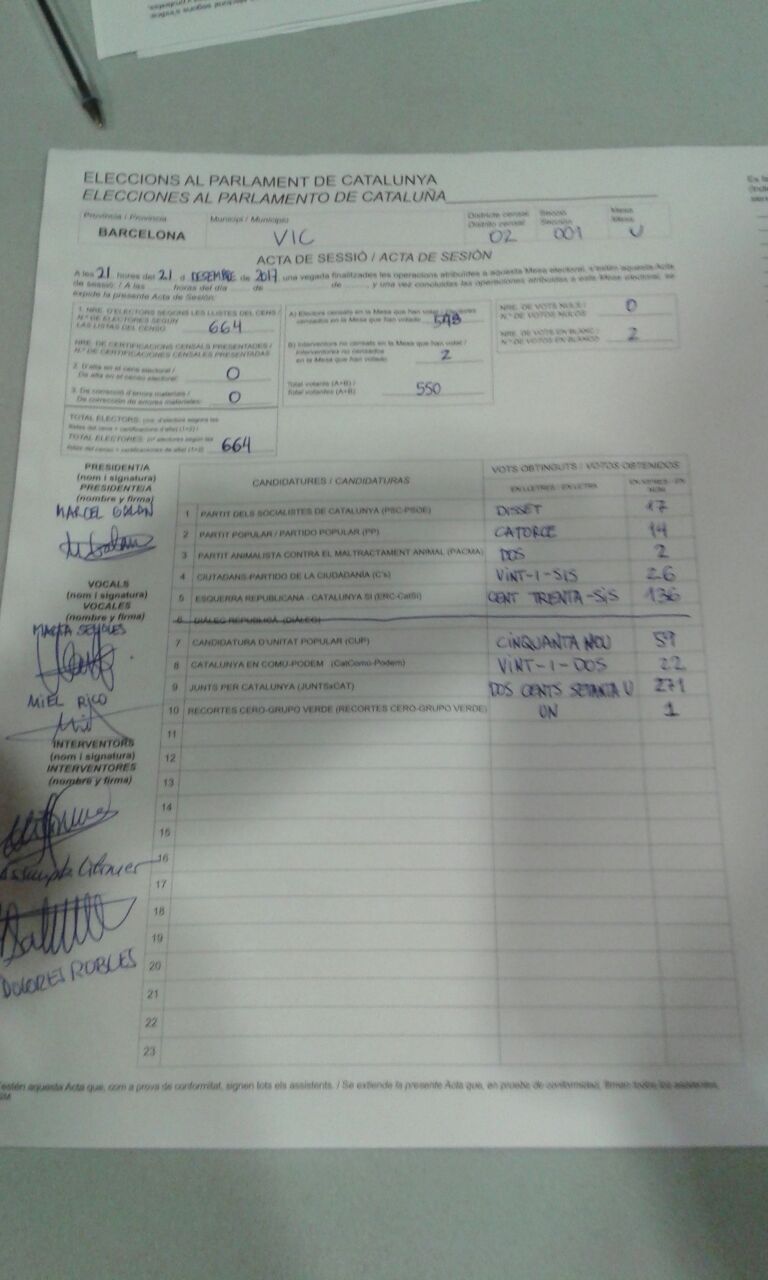 ELECCIONS AL PARLAMENT DE CATALUNYA
ELECCIONES AL PARLAMENTO DE CATALUÑA
Província / Provincia
BARCELONA
Municipi / Municipio
VIC
Districte censal
Distrito censal
02
Secció
Sección
001
Mesa
Mesa
U
ACTA DE SESSIÓ / ACTA DE SESIÓN
A les 21 hores del 21 d DESEMBRE de 2017, una vegada finalitzades les operacions atribuïdes a aquesta Mesa electoral, s'estén aquesta Acta
de sessió: / A las horas del día de de , y una vez concluidas las operaciones atribuidas a esta Mesa electoral, se
expide la presente Acta de Sesión:
1. NRE. D'ELECTORS SEGONS LES LLISTES DEL CENS /
N.º DE ELECTORES SEGÚN
LAS LISTAS DEL CENSO
664
NRE. DE CERTIFICACIONS CENSALS PRESENTADES /
N.º DE CERTIFICACIONES CENSALES PRESENTADAS
2. D'alta en el cens electoral /
De alta en el censo electoral:
0
3. De correcció d'errors materials /
De corrección de errores materiales:
0
TOTAL ELECTORS:
TOTAL ELECTORES:
664
A) Electors censats en la Mesa que han votat /
censados en la Mesa que han votado
548
B) Interventors no censats en la Mesa que han votat /
Interventores no censados
en la Mesa que han votado
2
Total votants (A+B) /
Total votantes (A+B)
550
NRE. DE VOTS NULS /
N.º DE VOTOS NULOS
0
NRE. DE VOTS EN BLANC /
N.º DE VOTOS EN BLANCO
2
PRESIDENT/A
(nom i signatura)
PRESIDENTE/A
(nombre y firma)
MARCEL
VOCALS
(nom i signatura)
VOCALES
(nombre y firma)
MARTA
MIEL RICO
INTERVENTORS
(nom i signatura)
INTERVENTORES
(nombre y firma)
DOLORES ROBLES
CANDIDATURES / CANDIDATURAS
VOTS OBTINGUTS / VOTOS OBTENIDOS
EN LLETRES / EN LETRA
EN XIFRES / EN NÚM
1 PARTIT DELS SOCIALISTES DE CATALUNYA (PSC-PSOE) DISSET 17
2 PARTIT POPULAR / PARTIDO POPULAR (PP) CATORCE 14
3 PARTIT ANIMALISTA CONTRA EL MALTRACTAMENT ANIMAL (PACMA) DOS 2
4 CIUTADANS-PARTIDO DE LA CIUDADANÍA (C's) VINT-I-SIS 26
5 ESQUERRA REPUBLICANA - CATALUNYA SÍ (ERC-CatSí) CENT TRENTA-SIS 136
6 DIÀLEG REPUBLICÀ (DIÀLEG)
7 CANDIDATURA D'UNITAT POPULAR (CUP) CINQUANTA NOU 59
8 CATALUNYA EN COMÚ-PODEM (CatComú-Podem) VINT-I-DOS 22
9 JUNTS PER CATALUNYA (JUNTSxCAT) DOS CENTS SETANTA U 271
10 RECORTES CERO-GRUPO VERDE (RECORTES CERO-GRUPO VERDE) UN 1
11
12
13
14
15
16
17
18
19
20
21
22
23
estén aquesta Acta que, com a prova de conformitat, signen tots els assistents. / Se extiende la presente Acta que, en prueba de conformidad, firman todos los asistentes.